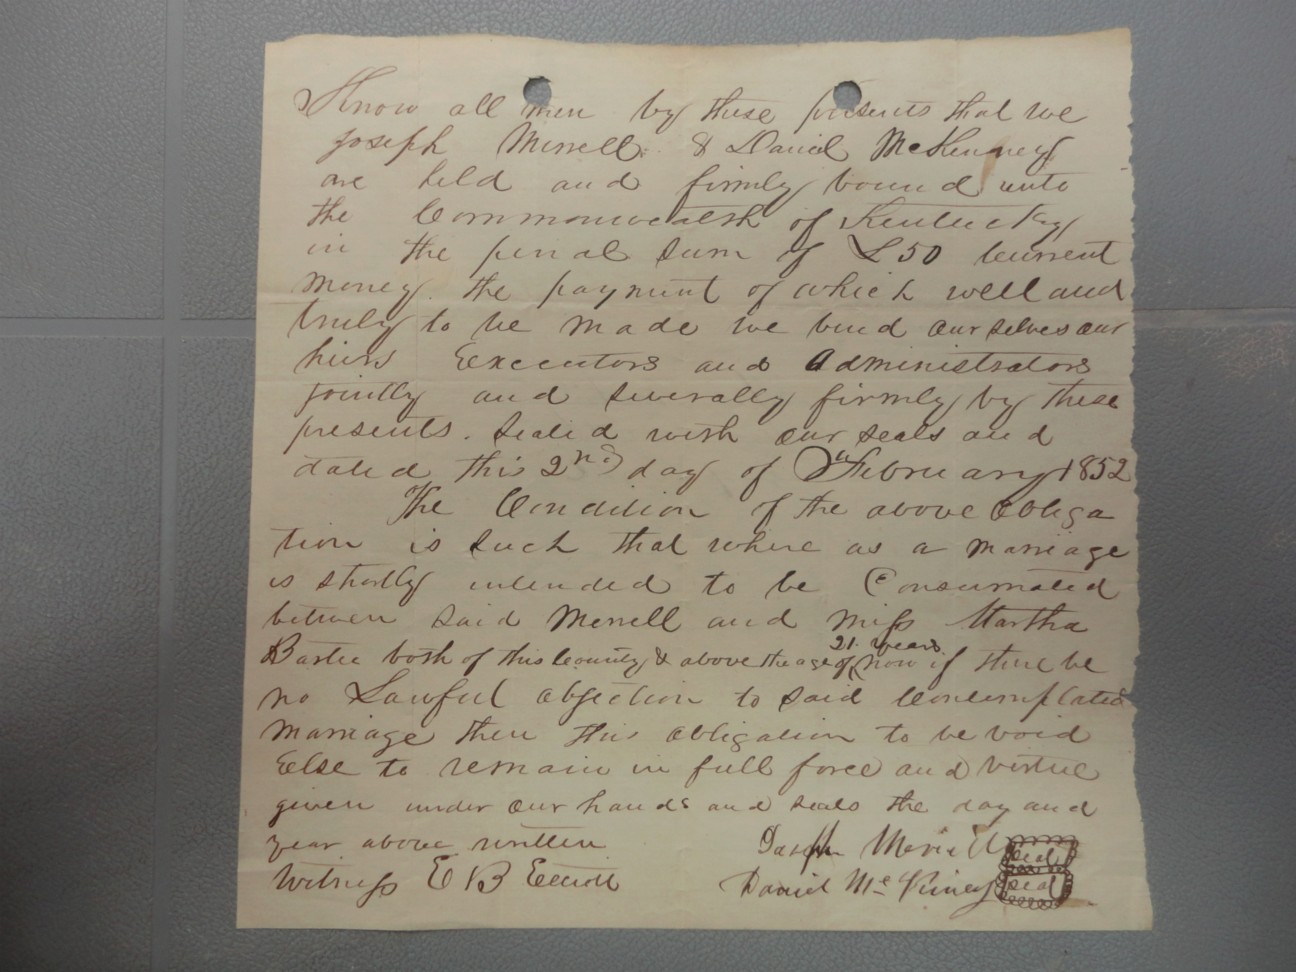 Know all men by these presents that we
Joseph Merrell & David McKenney
are held and firmly bound unto
the Commonwealth of Kentucky
in the penal sum of £50 Current
money. the payment of which well and
truly to be made we bind ourselves our
heirs Executors and Administrators
jointly and severally firmly by these
presents. Sealed with our seals and
dated this 2nd day of February 1852
The Condition of the above obliga
tion is such that where as a marriage
is shortly intended to be Consumated
between said Merrell and Miss Martha
both of this County & above the age of 21 years now if there be
no Lawful objection to said Contemplated
marriage then this obligation to be void
Else to remain in full force and virtue
given under our hands and seals the day and
year above written
Joseph Merrell seal
Witness E B Elliott
David McKinney seal